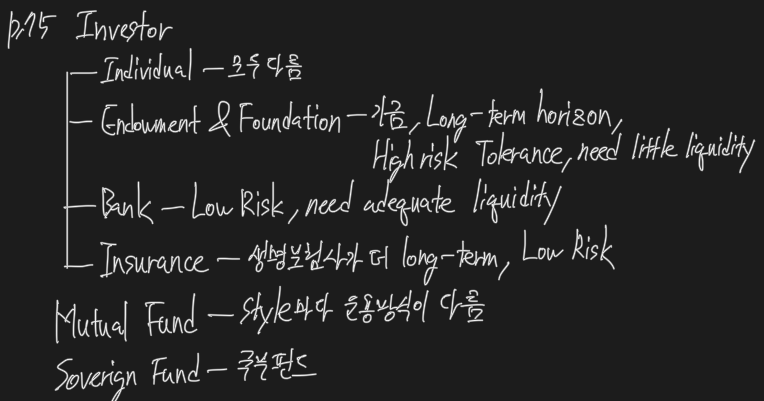 p.75 Investor
Individual — 모두 다름
Endowment & Foundation — 기금, Long-term horizon,
High risk Tolerance, need little liquidity
Bank — Low Risk, need adequate liquidity
Insurance — 생명보험사가 더 long-term, Low Risk
Mutual Fund — Style마다 운용방식이 다름
Soverign Fund — 국부펀드